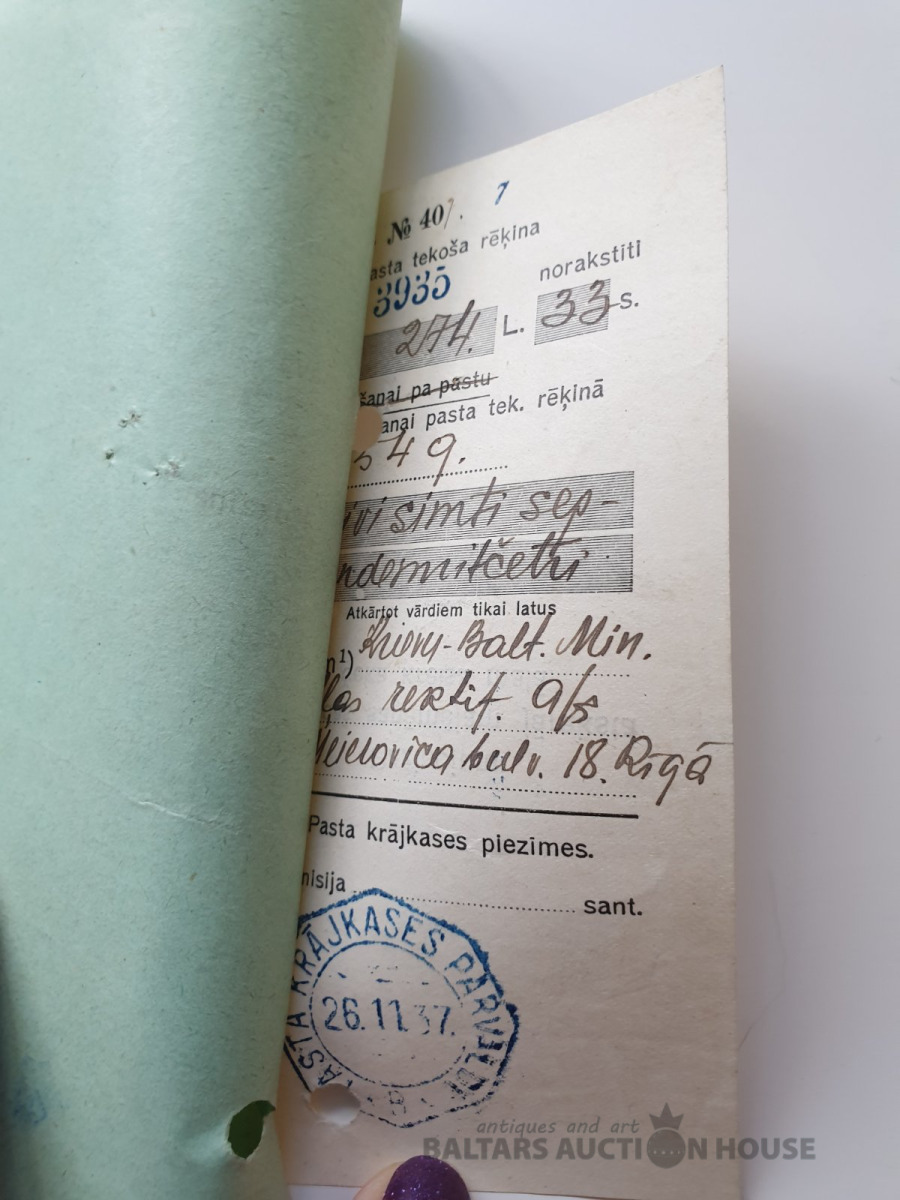 № 407. 7
asta tekoša rēķina
norakstīti
3935
274. L. 33 s.
šanai pa pastu
anai pasta tek. rēķinā
549.
ivi simti sep-
ndesmitčetri
Atkārtot vārdiem tikai latus
n¹) Balt. Min.
ļas rektif. a/s
Meierovica bulv. 18. Rīgā
Pasta krājkases piezīmes.
misija sant.
PASTA KRĀJKASES PĀRVALDE
26.11.37.
antiques and art
BALTARS AUCTION HOUSE